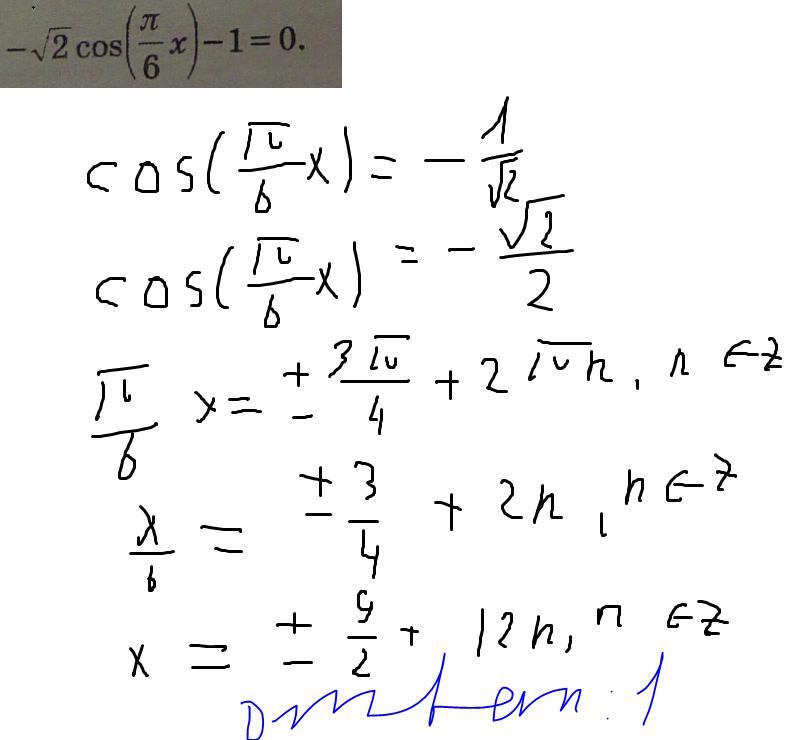 -√2 cos(π/6 x) - 1 = 0.
cos(π/6 x) = - 1/√2
cos(π/6 x) = - √2/2
π/6 x = ± 3π/4 + 2πn, n ∈ Z
x/6 = ± 3/4 + 2n, n ∈ Z
x = ± 9/2 + 12n, n ∈ Z
Ответ: 1